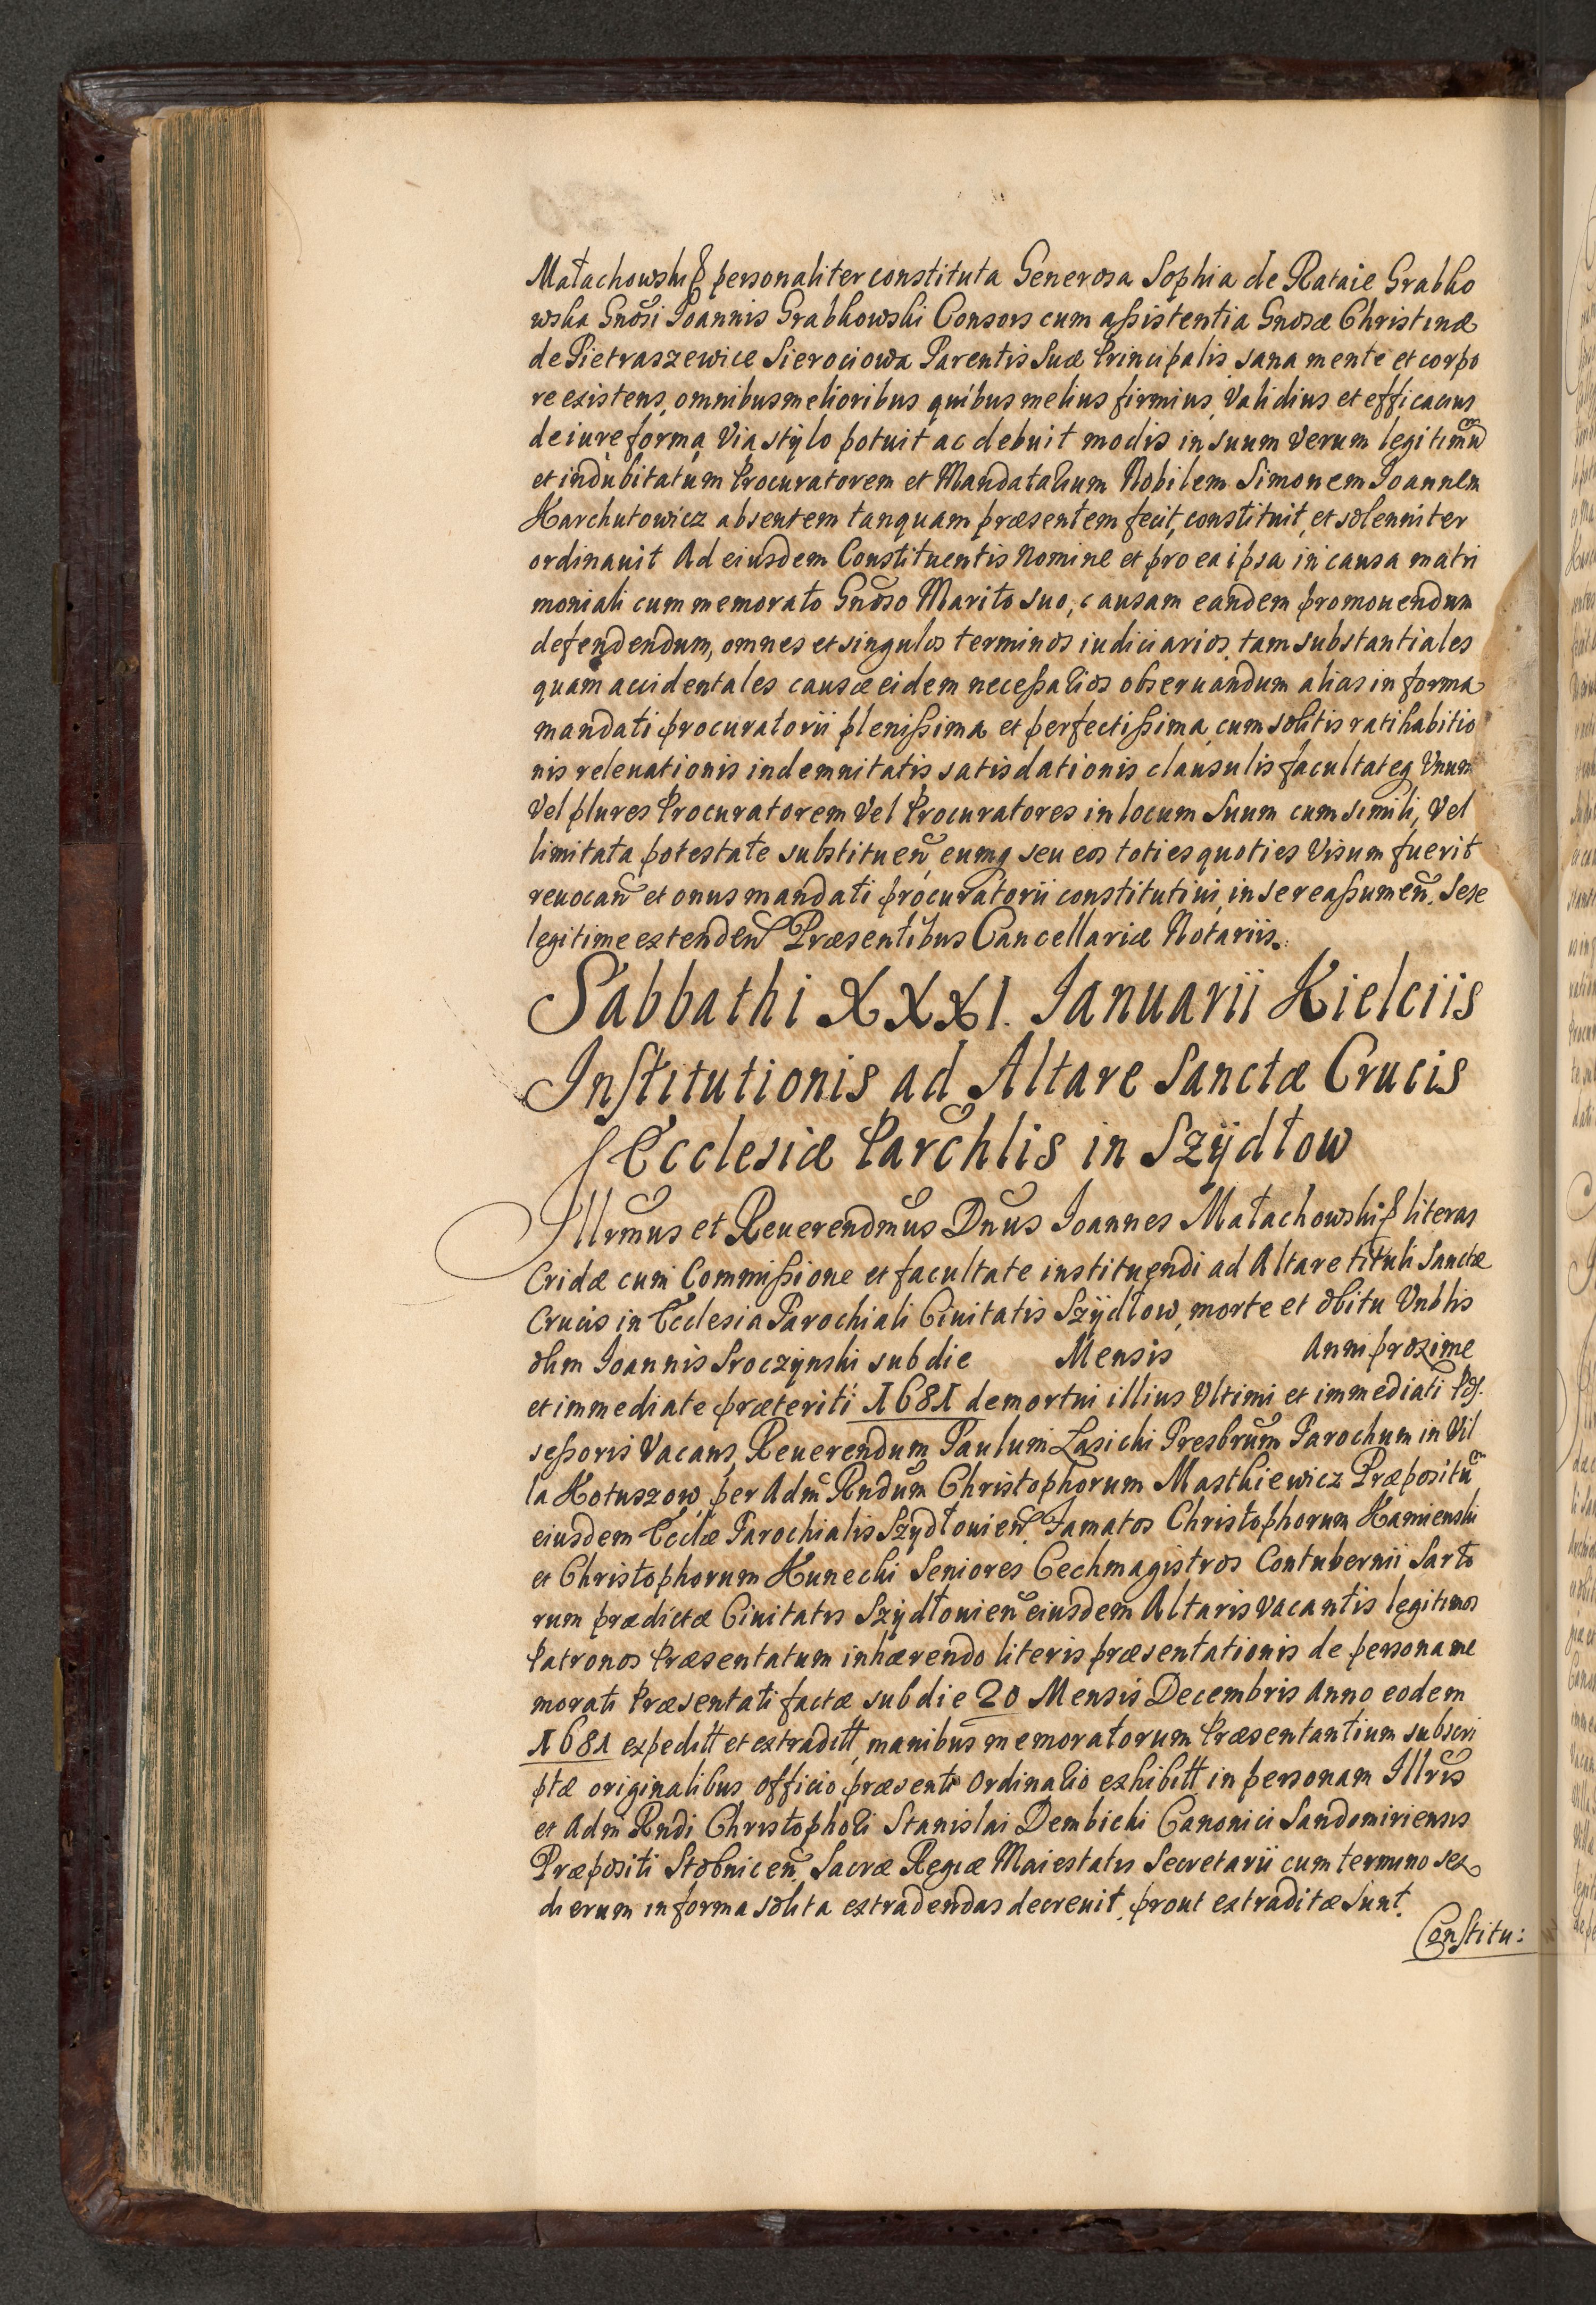 Małachowski ꝑ personaliter constituta Generosa Sophia de Rataie Grabko
wska Gnosi Joannis Grabkowski Consors cum assistentia Gnosæ Christinæ
de Pietraszewice Sierociowa Parentis Suæ Principalis sana mente et corpo
re existens, omnibus melioribus quibus melius firmius Validius et efficacius
de iure forma Via stylo potuit ac debuit modis in suum verum legitimũ
et indubitatum Procuratorem et Mandatarium Nobilem Simonem Joannem
Karchutowicz absentem tanquam præsentem fecit, constituit, et solenniter
ordinauit Ad eiusdem Constituentis Nomine et pro ea ipsa in causa matri
moniali cum memorato Gnoso Marito suo, causam eandem promouendum
defendendum, omnes et singulos terminos iudiciarios tam substantiales
quam accidentales causæ eidem necessarios obseruandum alias in forma
mandati procuratorii plenissima et perfectissima cum solitis ratihabitio
nis releuationis indemnitatis satisdationis clausulis facultateq Unum
Vel plures Procuratorem Vel Procuratores in locum Suum cum simili, Vel
limitata potestate substitueñ eumq seu eos toties quoties Visum fuerit
reuocañ et onus mandati procuratorii constitutiui in se reassumeñ. Sese
legitime extendeñ Præsentibus Cancellariæ Notariis.
Sabbathi XXXI. Ianuarii Kielciis
Institutionis ad Altare Sanctæ Crucis
Ecclesiæ Parchlis in Szÿdłow
Illrmus et Reuerendmus Dnus Joannes Małachowski ꝑ literas
Cridæ cum Commissione et facultate instituendi ad Altare tituli Sanctæ
Crucis in Ecclesia Parochiali Ciuitatis Szÿdłow, morte et obitu Vnblis
olim Joannis Sroczynski sub die Mensis Anni proxime
et immediate præteriti 1681 demortui illius Vltimi et immediati Pos.
sessoris Vacans, Reuerendum Paulum Lasicki Presbrum Parochum in Vil
la Kotuszow, per Adm Rndum Christophorum Masthiewicz Præpositũ
eiusdem Ecclæ Parochialis Szydłouieñ. Famatos Christophorum Kamienski
et Christophorum Kunecki Seniores Cechmagistros Contubernii Sarto
rum prædictæ Ciuitatis Szÿdłouieñ eiusdem Altaris vacantis legitimos
Patronos Præsentatum inhærendo literis præsentationis de persona me
morati Præsentati factæ sub die 20 Mensis Decembris Anno eodem
1681 expeditt et extraditt, manibus memoratorum Præsentantium subscri
ptæ originalibus officio præsenti Ordinario exhibitt in personam Illris
et Adm Rndi Christophori Stanislai Dembicki Canonici Sandomiriensis
Præpositi Stobniceñ. Sacræ Regiæ Maiestatis Secretarii cum termino sex
dierum in forma solita extradendas decreuit, prout extraditæ sunt.
Constitu: